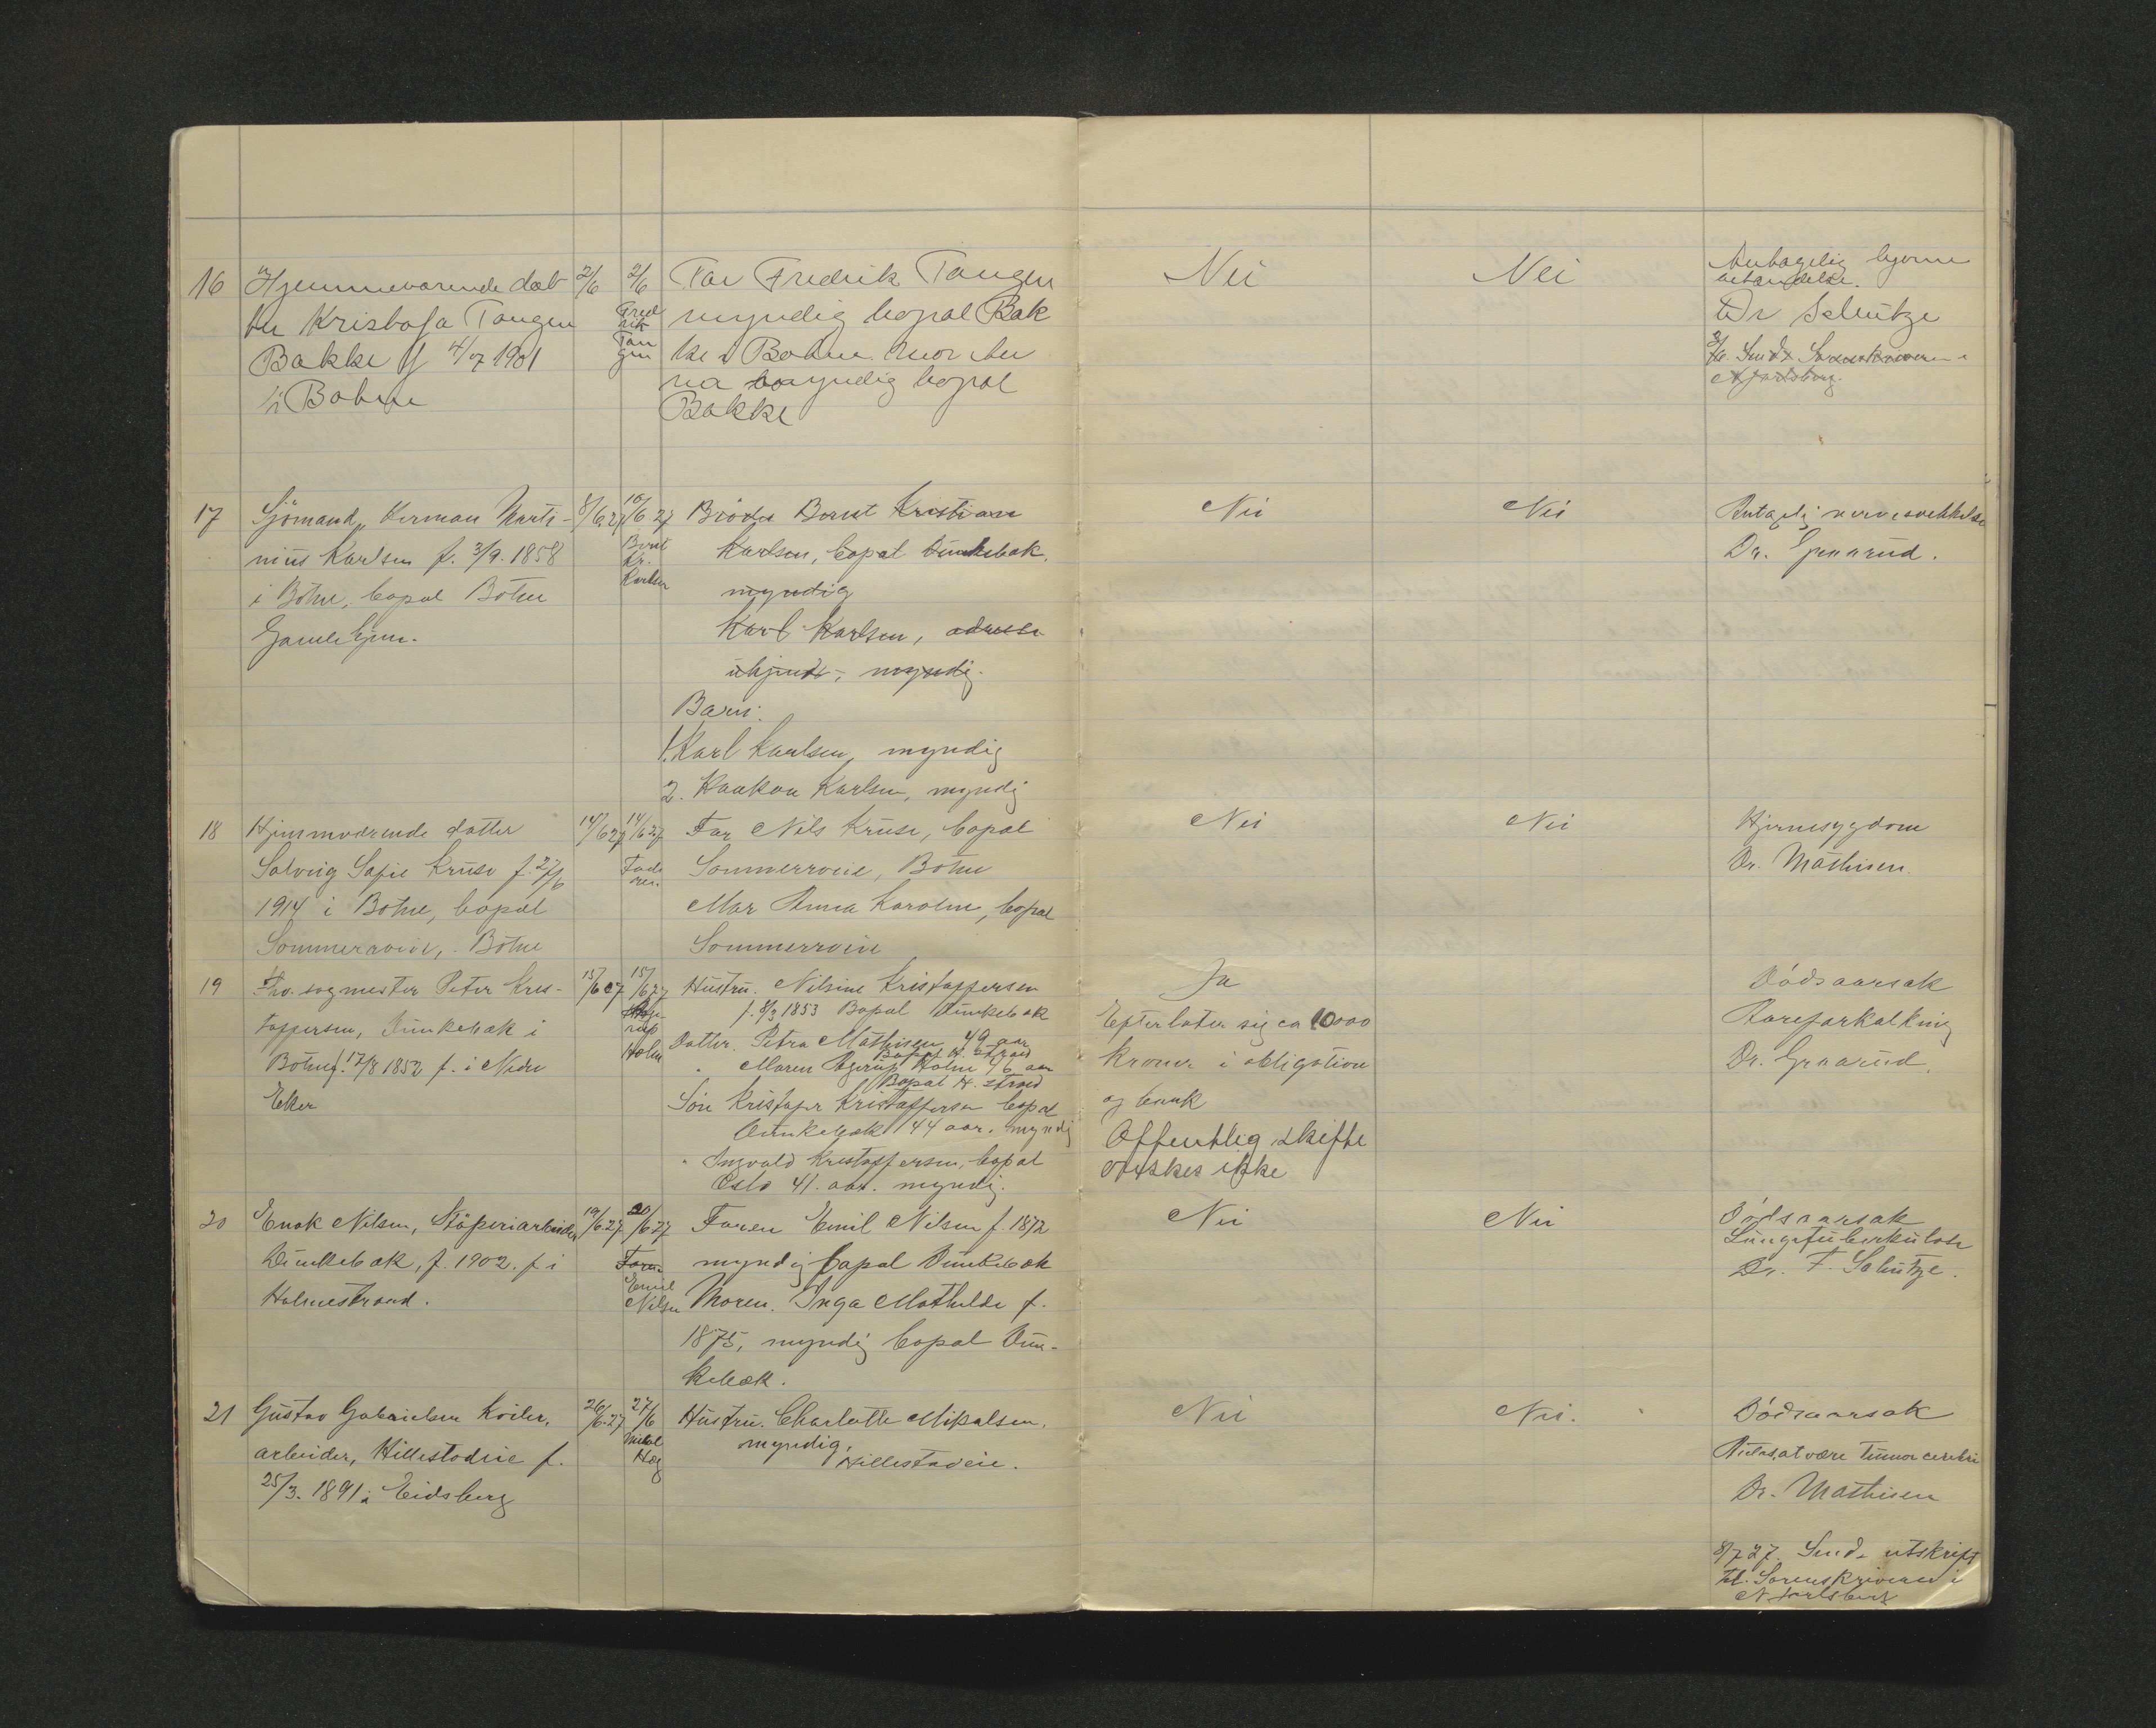 16
Hjemmeværende dat
ter Kristofa Tangen
Bakke f 4/7 1901
i Botne
2/6
2/6
Fred
rik
Tan
gen
Far Fredrik Tangen
myndig bopæl Bak
ke i Botne. Mor An
na myndig bopæl
Bakke
Nei
Nei
Antagelig hjerne
betændelse.
Dr Schütze
3/6. Sendt Sorenskriveren i
N Jarlsberg.
17
Sjömand Herman Marti-
nius Karlsen f. 3/9. 1858
i Botne, bopæl Botne
Gamlehjem.
8/6.27
10/6 27
Bernt
Kr.
Karlsen
Broder Bernt Kristian
Karlsen, bopæl Dunkebæk,
myndig
Karl Karlsen, adresse
ukjendt, myndig.
Barn:
1. Karl Karlsen, myndig
2. Haakon Karlsen, myndig
Nei
Nei
Antagelig nervesvekkelse
Dr. Graarud.
18
Hjemmværende datter
Solveig Sofie Kruse f. 27/6
1914 i Botne, bopæl
Sommerroveie, Botne
14/6 27
14/6 27
Fade
ren.
Far Nils Kruse, bopæl
Sommerroveie, Botne
Mor Anna Karoline, bopæl
Sommerroveie
Nei
Nei
Hjernesygdom
Dr. Mathisen.
19
Fhv. sagmester Peter Kris-
toffersen, Dunkebæk i
Botne f. 17/8 1852 f. i Nedre
Eker
15/6 27
15/6 27
Holm
Hustru. Nilsine Kristoffersen
f. 8/3 1853 Bopæl Dunkebæk
Datter. Petra Mathisen 49 aar
Bopæl H. strand
" Maren Agerup Holm 46 aar
Bopæl H. strand
Sön Kristofer Kristoffersen bopæl
Dunkebæk 44 aar. myndig
" Ingvald Kristoffersen, bopæl
Oslo 41. aar. myndig.
Ja
Efterlater sig ca 10000
kroner i obligation
og bank
Offentlig skifte
ønskes ikke
Dödsaarsak
Aareforkalkning
Dr. Graarud.
20
Enok Nilsen, Stöperiarbeider
Dunkebæk, f. 1902. f. i
Holmestrand.
19/6.27
20/6 27
Faren
Emil
Nilsen
Faren Emil Nilsen f. 1872
myndig bopæl Dunkebæk
Moren. Inga Mathilde f.
1875, myndig bopæl Dun-
kebæk.
Nei
Nei
Dödsaarsak
Lungetuberkulose
Dr. F. Schütze.
21
Gustav Gabrielsen Koiler,
arbeider, Hillestadeie f.
25/3. 1891 i Eidsberg
26/6.27
27/6
Hustru. Charlotte Mikalsen.
myndig,
Hillestadeie.
Nei
Nei.
Dödsaarsak
Antas at være tumor cerebri
Dr. Mathisen
8/7 27. Sendt utskrift
til. Sorenskriveren i
N. Jarlsberg